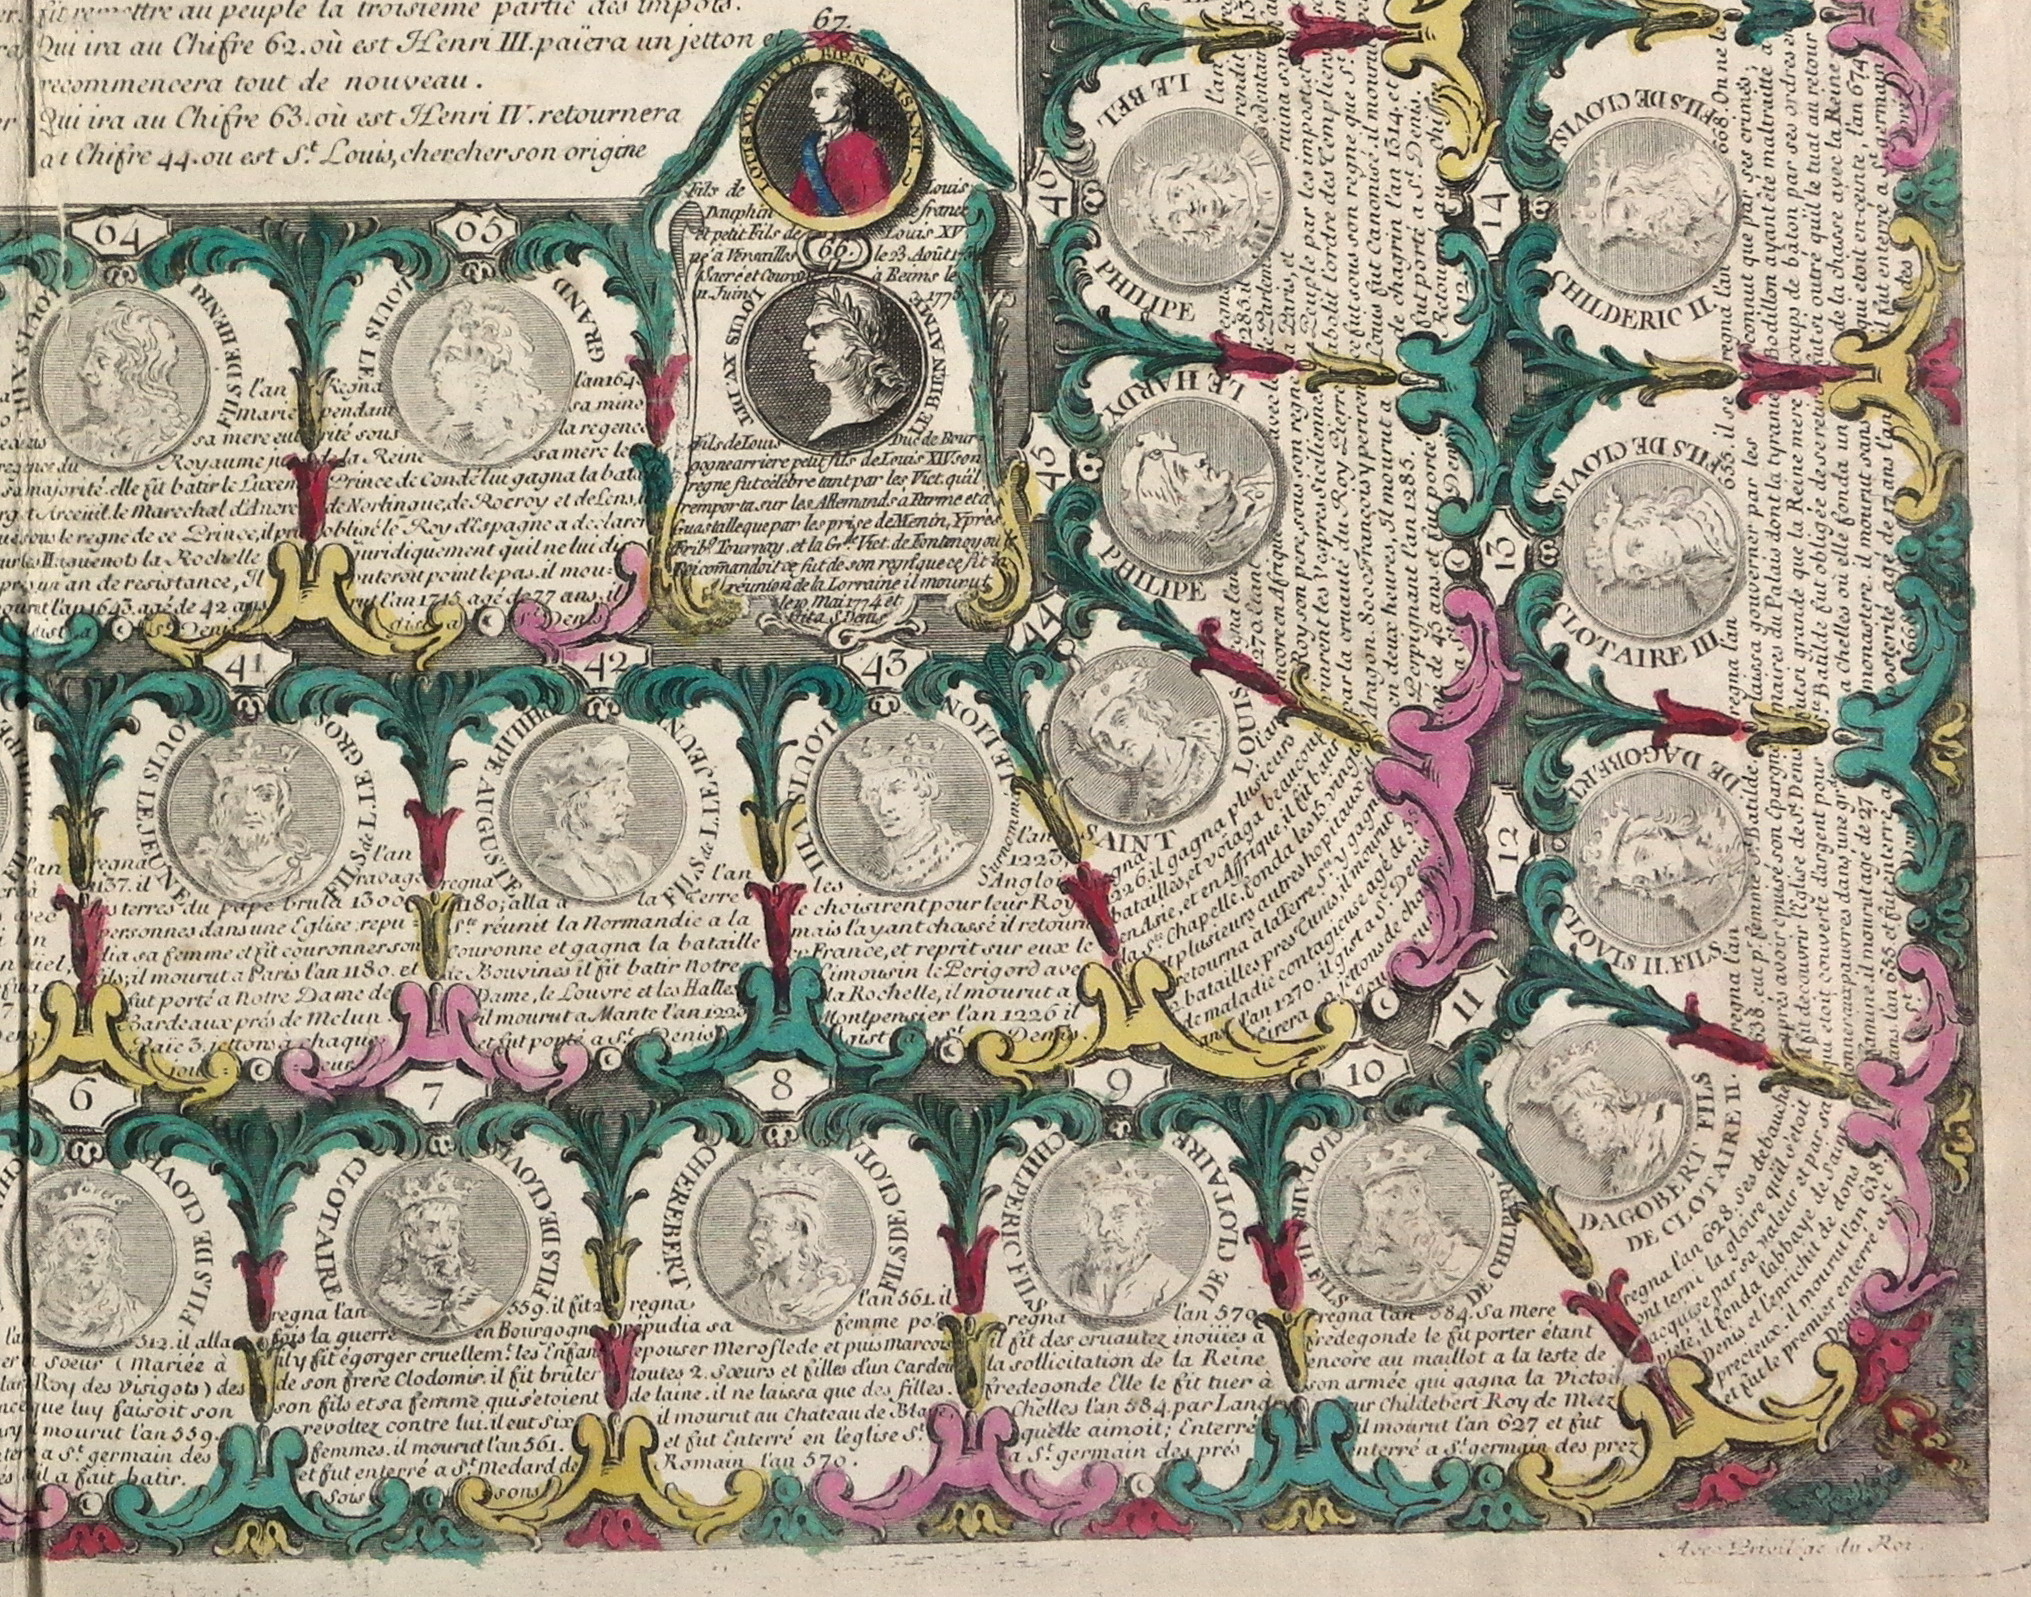 fit remettre au peuple la troisieme partie des impots.
Qui ira au Chifre 62. où est Henri III. païera un jetton et
recommencera tout de nouveau.
Qui ira au Chifre 63. où est Henri IV. retournera
au Chifre 44. ou est St. Louis, chercher son origine
67.
LOUIS XVI. DIT LE BIEN FAISANT
Fils de Louis
Dauphin de france
et petit Fils de Louis XV
né à Versailles le 23 Août
Sacré et Couron à Reims le
11. Juin 1775
66.
LOUIS XV. DIT LE BIEN AIMÉ
Fils de Louis Duc de Bour-
gogne arriere petit fils de Louis XIV son
regne fut célébre tant par les Vict. qu'il
remporta sur les Allemands a Parme et à
Guastalle que par les prise de Menin, Ypres
Frib. Tournay, et la Gr.de Vict. de Fontenoy où le
Roi comandoit ce fut de son regn que ce fit la
réunion de la Lorraine il mourut
le 10 Mai 1774 et
Gît a St. Denis
64
LOUIS XIII FILS DE HENRI
l'an
Marie
sa mere eut
regence du Royaume
sa majorité. elle fit bâtir le Luxem
Arceuil. le Marechal d'Ancre
sous le regne de ce Prince, il pri
les Huguenots la Rochelle
an de resistance, Il
mourut l'an 1643. agé de 42 ans
gist a St. Denis
65
LOUIS LE GRAND
Regna l'an 1643
pendant sa mino
rité sous la regence
de la Reine sa mere le
Prince de Condé lui gagna la bata
de Nortingue, de Rocroy et de Lens,
obligé le Roy d'espagne a declarer
juridiquement qu'il ne lui di
puteroit point le pas. il mou:
rut l'an 1715. agé de 77 ans, il
gist a St. Denis
41
LOUIS LE JEUNE FILS de L. LE GROS
regna l'an
1137. il ravagea
les terres du pape brula 1300
personnes dans une Eglise; repu
dia sa femme et fit couronner son
fils; il mourut a Paris l'an 1180. et
fut porté a Notre Dame de
Bardeaux prés de Melun.
Paie 3. jettons a chaque
joueur
42
PHILIPPE AUGUSTE FILS de L. LE JEUN
regna l'an
1180; alla a la Terre
Ste. réunit la Normandie a la
Couronne et gagna la bataille
de Bouvines il fit batir Notre
Dame, le Louvre et les Halles
il mourut a Mante l'an 1223
et fut porté a St. Denis
43
LOUIS VIII LE LION
Surnomme l'an
1223.
les Anglo
le choisirent pour leur Roy
mais l'ayant chassé il retourn
en France, et reprit sur eux le
Limousin le Perigord ave
la Rochelle, il mourut a
Montpensier l'an 1226 il
gist a St. Denis.
44
SAINT LOUIS
regna l'an
1226, il gagna plusieurs
batailles, et voiaga beaucoup
en Asie, et en Affrique, il fit batir
la Ste. Chapelle, fonda les 15. vingt
et plusieurs autres hopitaux, il
retourna à la Terre Ste. y gagna
2. batailles pres Tunis, il mourut
de maladie contagieuse agé de 55
ans l'an 1270. il gist a St. Denis
Tirera 2 jettons de cha
que joueur
45
PHILIPE LE HARDY
regna l'an
1270. étant
encore en Afrique avec le
Roy son pere, sous son regne
vinrent les Vespres Siciliennes
par la cruauté du Roy Pierre
d'Aragon. 8000 François y perirent
en deux heures, Il mourut a
Perpignant l'an 1285.
agé de 45 ans et fut porté
a St. Denis
46
PHILIPE LE BEL
regna l'an
1285. il rendit
le Parlement sedentaire
a Paris, et ruina son
Peuple par les impost et
abolit l'ordre des Templiers
ce fut sous son regne que St.
Louis fut Canonisé. il mourut
de chagrin l'an 1314. et
fut porté a St. Denis.
Retourne au Chiffre
12.
6
FILS DE CLOVIS
l'an 512. il alla
soeur (Mariée à
Roy des Visigots) des
que luy faisoit son
mourut l'an 559.
a St. germain des
il a fait batir.
7
CLOTAIRE FILS DE CLOVIS
regna l'an 559. il fit 2
fois la guerre en Bourgogne
il y fit égorger cruellemt. les Enfan
de son frere Clodomir. il fit brûler
son fils et sa femme qui s'etoient
revoltez contre lui. il eut six
femmes. il mourut l'an 561.
et fut enterré a St. Medard de
Soissons
8
CHEREBERT FILS DE CLOTA
regna l'an 561. il
repudia sa femme po
epouser Meroflede et puis Marcou
toutes 2. Sœurs et filles d'un Cardeu
de laine. il ne laissa que des filles.
il mourut au Chateau de Blaye
et fut Enterré en l'eglise St.
Romain l'an 570.
9
CHILPERIC FILS DE CLOTAIRE
regna l'an 570
il fit des cruautez inouies à
la sollicitation de la Reine
fredegonde Elle le fit tuer à
Chelles l'an 584. par Landri
qu'elle aimoit; Enterré
a St. germain des prés
10
CLOTAIRE II. FILS DE CHILPERIC
regna l'an 584. Sa mere
fredegonde le fit porter étant
encore au maillot a la teste de
son armée qui gagna la Victoi
sur Childebert Roy de Metz
il mourut l'an 627 et fut
enterré a St. germain des prez
11
DAGOBERT FILS
DE CLOTAIRE II.
regna l'an 628. ses debauche
ont terni la gloire qu'il s'étoit
acquise par sa valeur et par sa
pieté, il fonda l'abbaye de Saint
Denis et l'enrichit de dons
precieux. il mourut l'an 638.
et fut le premier enterré a St.
Denis
12
CLOVIS II. FILS DE DAGOBERT
regna l'an
638. eut pr. femme Ste. Batilde
aprés avoir épuisé son épargne
il fit decouvrir l'eglise de St. Denis
qui etoit couverte d'argent pour
donner aux pauvres dans une gr.de
famine. il mourut agé de 27
ans l'an 655 et fut interré a
St. Denis
13
CLOTAIRE III. FILS DE CLOVIS
regna l'an 655. il se
laissa gouverner par les
maires du Palais dont la tyrannie
fut si grande que la Reine mere
Ste. Batilde fut obligée de se retirer
a Chelles où elle fonda un
monastere. il mourut sans
posterité agé de 17 ans l'an
668
14
CHILDERIC II. FILS DE CLOVIS.
regna l'an 668. On ne le
connut que par ses crimes.
Bodillon ayant été maltraité à
coups de bâton par ses ordres en
fut si outré qu'il le tua au retour
de la chasse avec la Reine
qui etoit enceinte, l'an 674
il fut enterré a St. germain
des Prés
Avec Privilège du Roi.